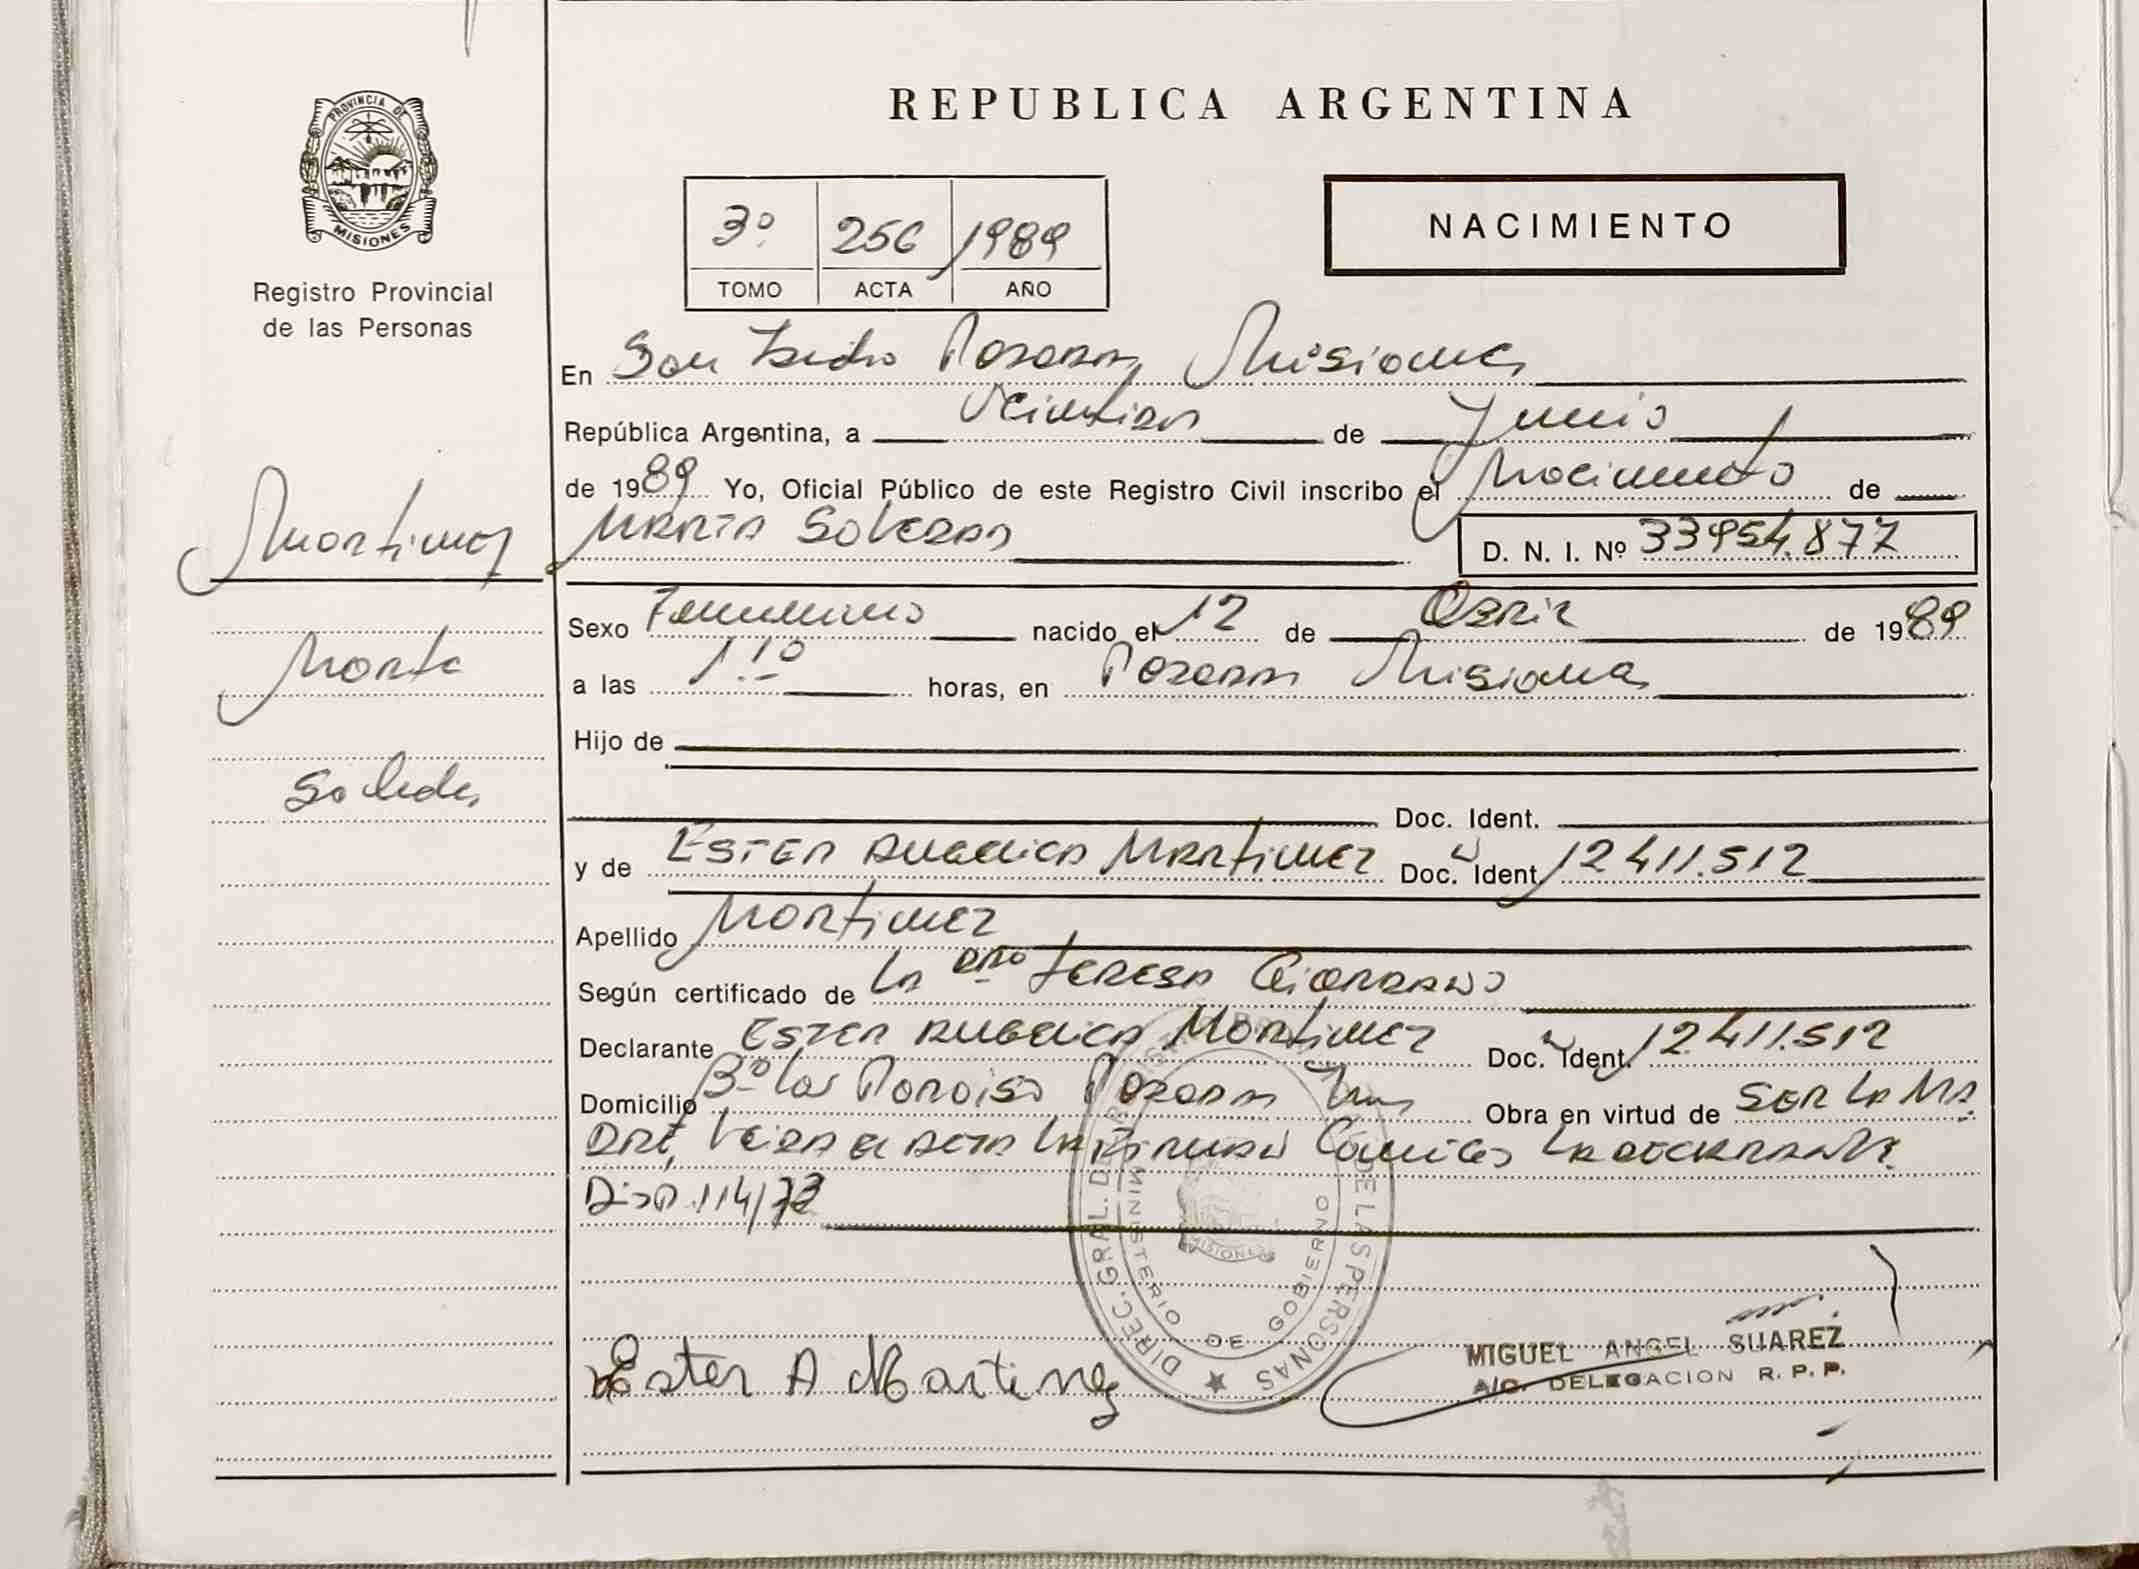 PROVINCIA DE
MISIONES
Registro Provincial
de las Personas
Martinez
Marta
Soledad
REPUBLICA ARGENTINA
NACIMIENTO
3º 256 1989
TOMO ACTA AÑO
En San Isidro Posadas Misiones
República Argentina, a de Junio
de 1989 Yo, Oficial Público de este Registro Civil inscribo el Nacimiento de
MARTA SOLEDAD
D. N. I. Nº 33954.877
Sexo Femenino nacido el 12 de ABRIL de 1989
a las horas, en Posadas Misiones
Hijo de
Doc. Ident.
y de ESTER ANGELICA MARTINEZ Doc. Ident. 12411.512
Apellido Martinez
Según certificado de LA TERESA
Declarante ESTER ANGELICA MARTINEZ Doc. Ident. 12.411.512
Domicilio Bº Los Paraiso Posadas Mnes Obra en virtud de SER LA MA
DRE, Leida el acta la firman Conmigo la declarante.
Disp. 114/
DIREC. GRAL. DE LAS PERSONAS
MINISTERIO DE GOBIERNO
MISIONES
Ester A Martinez
MIGUEL ANGEL SUAREZ
A/C. DELEGACION R. P. P.